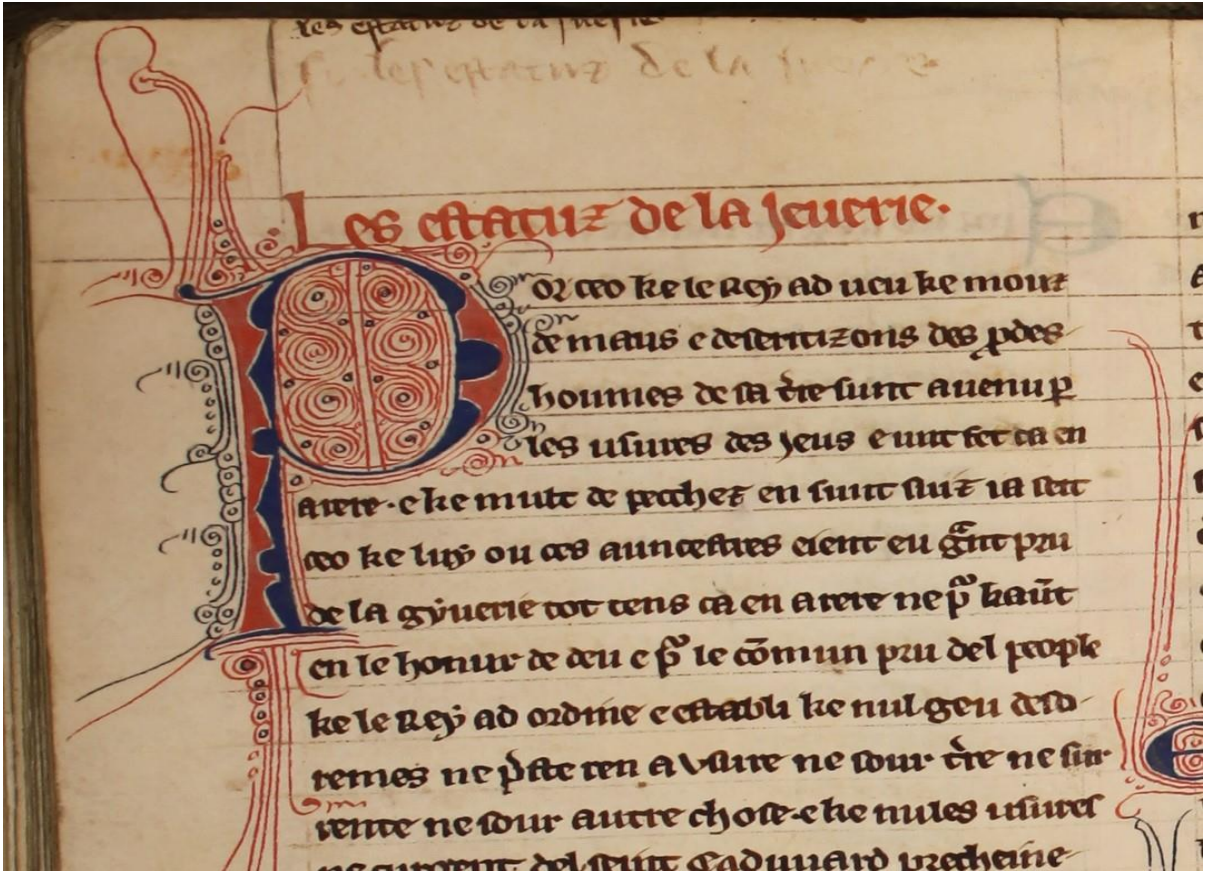 les estatuz de la juerie
les estatuz de la
Les estatuz de la Jeuerie.
Por ceo ke le Rey ad ueu ke mouz
de maus e deseritizons des ꝓdes
houmes de sa t͛re sunt auenu ꝑ
les usures des Jeus e unt fet ca en
arere · e ke mult de pecchez en sunt siuz ia seit
ceo ke luy ou ces auncestres eient eu gᵃnt pru
de la gyuerie tot tens ca en arere ne pᵃ kaūt
en le honur de deu e pᵃ le cōmun pru del people
ke le Rey ad ordine e establi ke nul geu deso-
remes ne p͛ste ren a vsure ne sour t͛re ne sur
rente ne sour autre chose · e ke nules usures
ne curgent del seint Eaduuard precheine